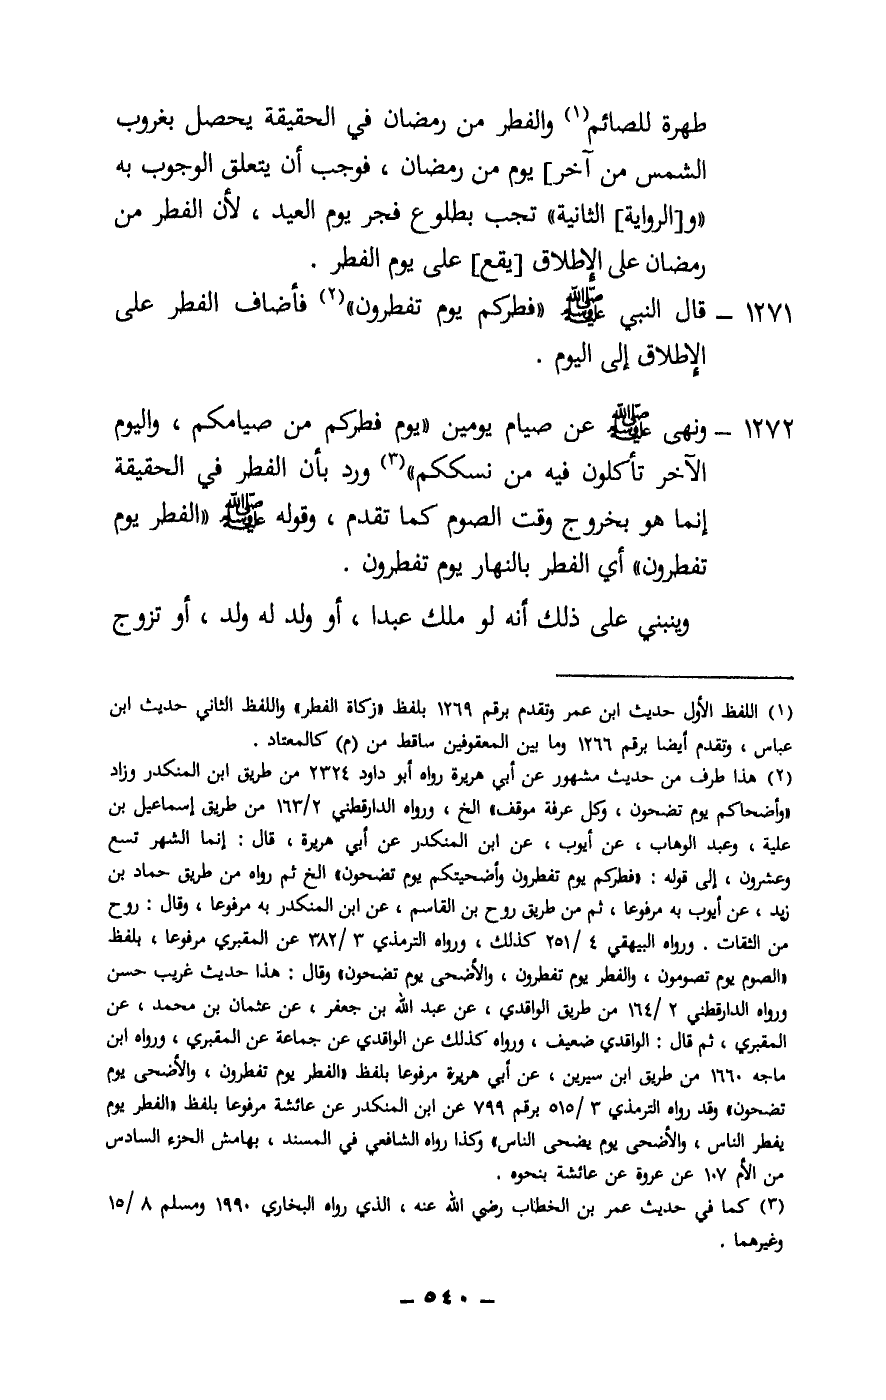 طهرة للصائم(١) والفطر من رمضان في الحقيقة يحصل بغروب
الشمس من آخر] يوم من رمضان ، فوجب أن يتعلق الوجوب به
«و[الرواية] الثانية» تجب بطلوع فجر يوم العيد ، لأن الفطر من
رمضان على الإطلاق [يقع] على يوم الفطر .
١٢٧١ – قال النبي ﷺ «فطركم يوم تفطرون»(٢) فأضاف الفطر على
الإطلاق إلى اليوم .
١٢٧٢ – ونهى ﷺ عن صيام يومين «يوم فطركم من صيامكم ، واليوم
الآخر تأكلون فيه من نسككم»(٣) ورد بأن الفطر في الحقيقة
إنما هو بخروج وقت الصوم كما تقدم ، وقوله ﷺ «الفطر يوم
تفطرون» أي الفطر بالنهار يوم تفطرون .
وينبني على ذلك أنه لو ملك عبدا ، أو ولد له ولد ، أو تزوج
(١) اللفظ الأول حديث ابن عمر وتقدم برقم ١٢٦٩ بلفظ «زكاة الفطر» واللفظ الثاني حديث ابن
عباس ، وتقدم أيضا برقم ١٢٦٦ وما بين المعقوفين ساقط من (م) كالمعتاد .
(٢) هذا طرف من حديث مشهور عن أبي هريرة رواه أبو داود ٢٣٢٤ من طريق ابن المنكدر وزاد
«وأضحاكم يوم تضحون ، وكل عرفة موقف» الخ ، ورواه الدارقطني ١٦٣/٢ من طريق إسماعيل بن
علية ، وعبد الوهاب ، عن أيوب ، عن ابن المنكدر عن أبي هريرة ، قال : إنما الشهر تسع
وعشرون ، إلى قوله : «فطركم يوم تفطرون وأضحيتكم يوم تضحون» الخ ثم رواه من طريق حماد بن
زيد ، عن أيوب به مرفوعا ، ثم من طريق روح بن القاسم ، عن ابن المنكدر به مرفوعا ، وقال : روح
من الثقات . ورواه البيهقي ٤ /٢٥١ كذلك ، ورواه الترمذي ٣ /٣٨٢ عن المقبري مرفوعا ، بلفظ
«الصوم يوم تصومون ، والفطر يوم تفطرون ، والأضحى يوم تضحون» وقال : هذا حديث غريب حسن
ورواه الدارقطني ٢ /١٦٤ من طريق الواقدي ، عن عبد الله بن جعفر ، عن عثمان بن محمد ، عن
المقبري ، ثم قال : الواقدي ضعيف ، ورواه كذلك عن الواقدي عن جماعة عن المقبري ، ورواه ابن
ماجه ١٦٦٠ من طريق ابن سيرين ، عن أبي هريرة مرفوعا بلفظ «الفطر يوم تفطرون ، والأضحى يوم
تضحون» وقد رواه الترمذي ٣ /٥١٥ برقم ٧٩٩ عن ابن المنكدر عن عائشة مرفوعا بلفظ «الفطر يوم
يفطر الناس ، والأضحى يوم يضحى الناس» وكذا رواه الشافعي في المسند ، بهامش الجزء السادس
من الأم ١٠٧ عن عروة عن عائشة بنحوه .
(٣) كما في حديث عمر بن الخطاب رضي الله عنه ، الذي رواه البخاري ١٩٩٠ ومسلم ٨ /١٥
وغيرهما .
– ٥٤٠ –